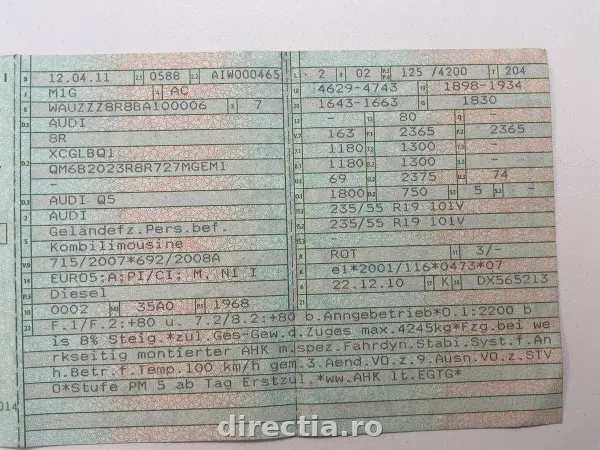 I B 12.04.11 2.1 0588 2.2 AIW000465
J M1G 4 AC
E WAUZZZ8R8BA100006 3 7
D.1 AUDI
8R
D.2 XCGLBQ1
QM6B2023R8R727MGEM1
-
D.3 AUDI Q5
2 AUDI
5 Geländefz.Pers.bef.
Kombilimousine
V.9 715/2007*692/2008A
14 EURO5;A;PI/CI; M, N1 I
P.3 Diesel
10 0002 14.1 35A0 P.1 1968
L 2 9 02 P.2 125 /4200 T 204
18 4629-4743 19 1898-1934
20 1643-1663 G 1830
12 - 13 80 Q -
V.7 163 F.1 2365 F.2 2365
7.1 1180 8.1 1300
7.2 1180 8.2 1300
7.3 - 8.3 -
U.1 69 U.2 2375 U.3 74
O.1 1800 O.2 750 S.1 5 S.2 -
15.1 235/55 R19 101V
15.2 235/55 R19 101V
15.3 -
R ROT 11 3/-
K e1*2001/116*0473*07
6 22.12.10 17 K 16 DX565213
21
22 F.1/F.2:+80 u. 7.2/8.2:+80 b.Anngebetrieb*O.1:2200 b
is 8% Steig.*zul.Ges-Gew.d.Zuges max.4245kg*Fzg.bei we
rkseitig montierter AHK m.spez.Fahrdyn.Stabi.Syst.f.An
h.Betr.f.Temp.100 km/h gem.3.Aend.VO.z.9.Ausn.VO.z.STV
O*Stufe PM 5 ab Tag Erstzul.*ww.AHK lt.EGTG*
014
directia.ro